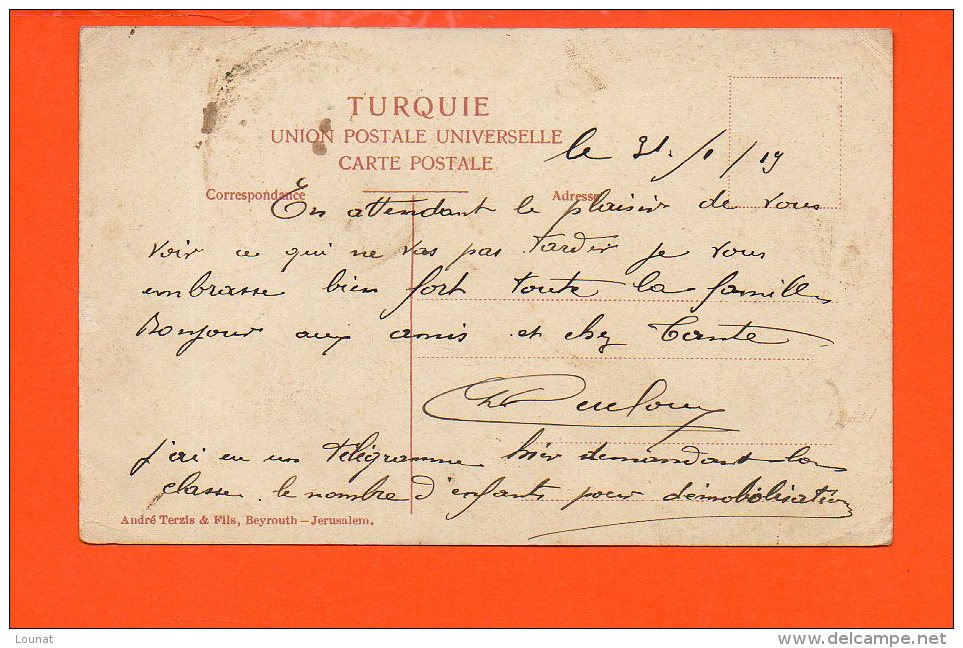 TURQUIE
UNION POSTALE UNIVERSELLE
CARTE POSTALE
le 31/1/19
Correspondance
Adresse
En attendant le plaisir de vous
voir ce qui ne vas pas tarder je vous
embrasse bien fort toute la famille
Bonjour aux amis et chez Tante
j'ai eu un télégramme hier demandant la
classe. le nombre d'enfants pour démobilisation
André Terzis & Fils, Beyrouth—Jerusalem.
Lounat
http://www.delcampe.net